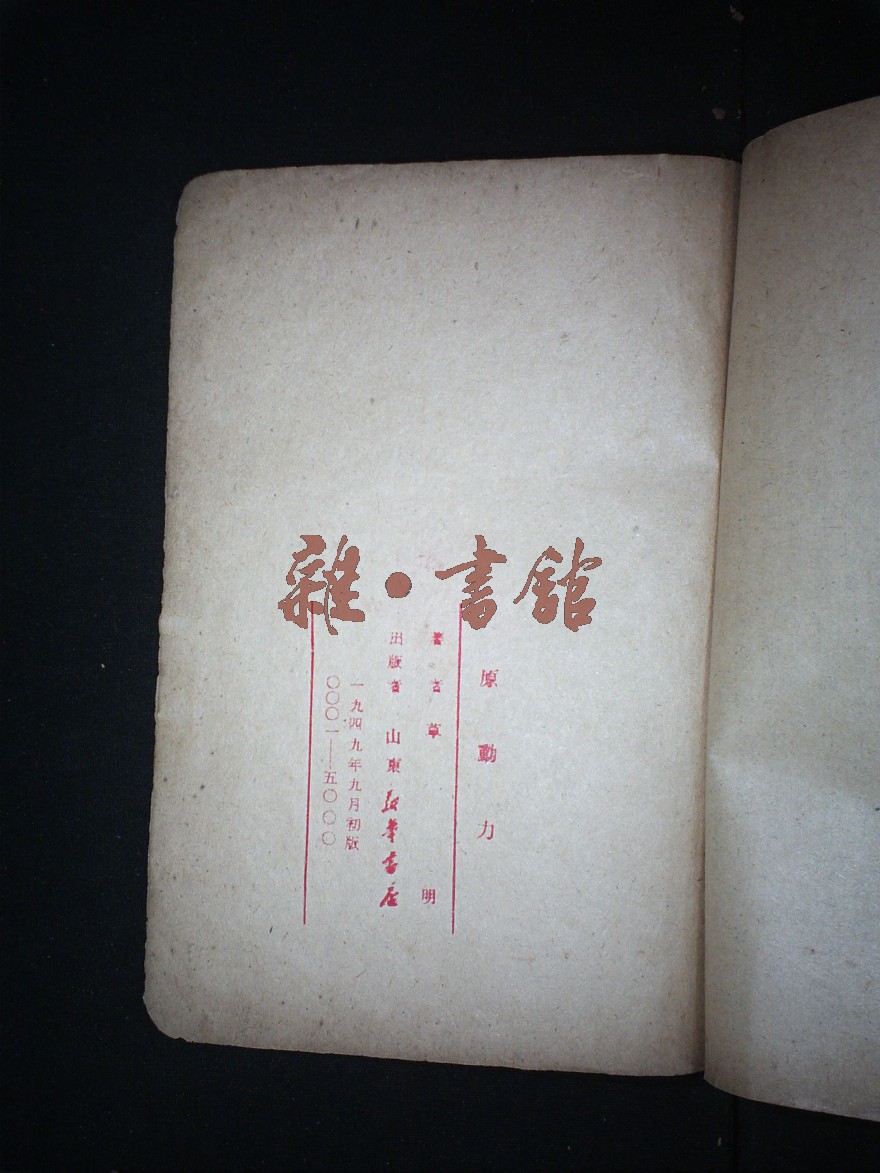 雜·書館
原動力
著者 草明
出版者 山東新華書店
一九四九年九月初版
〇〇〇一——五〇〇〇